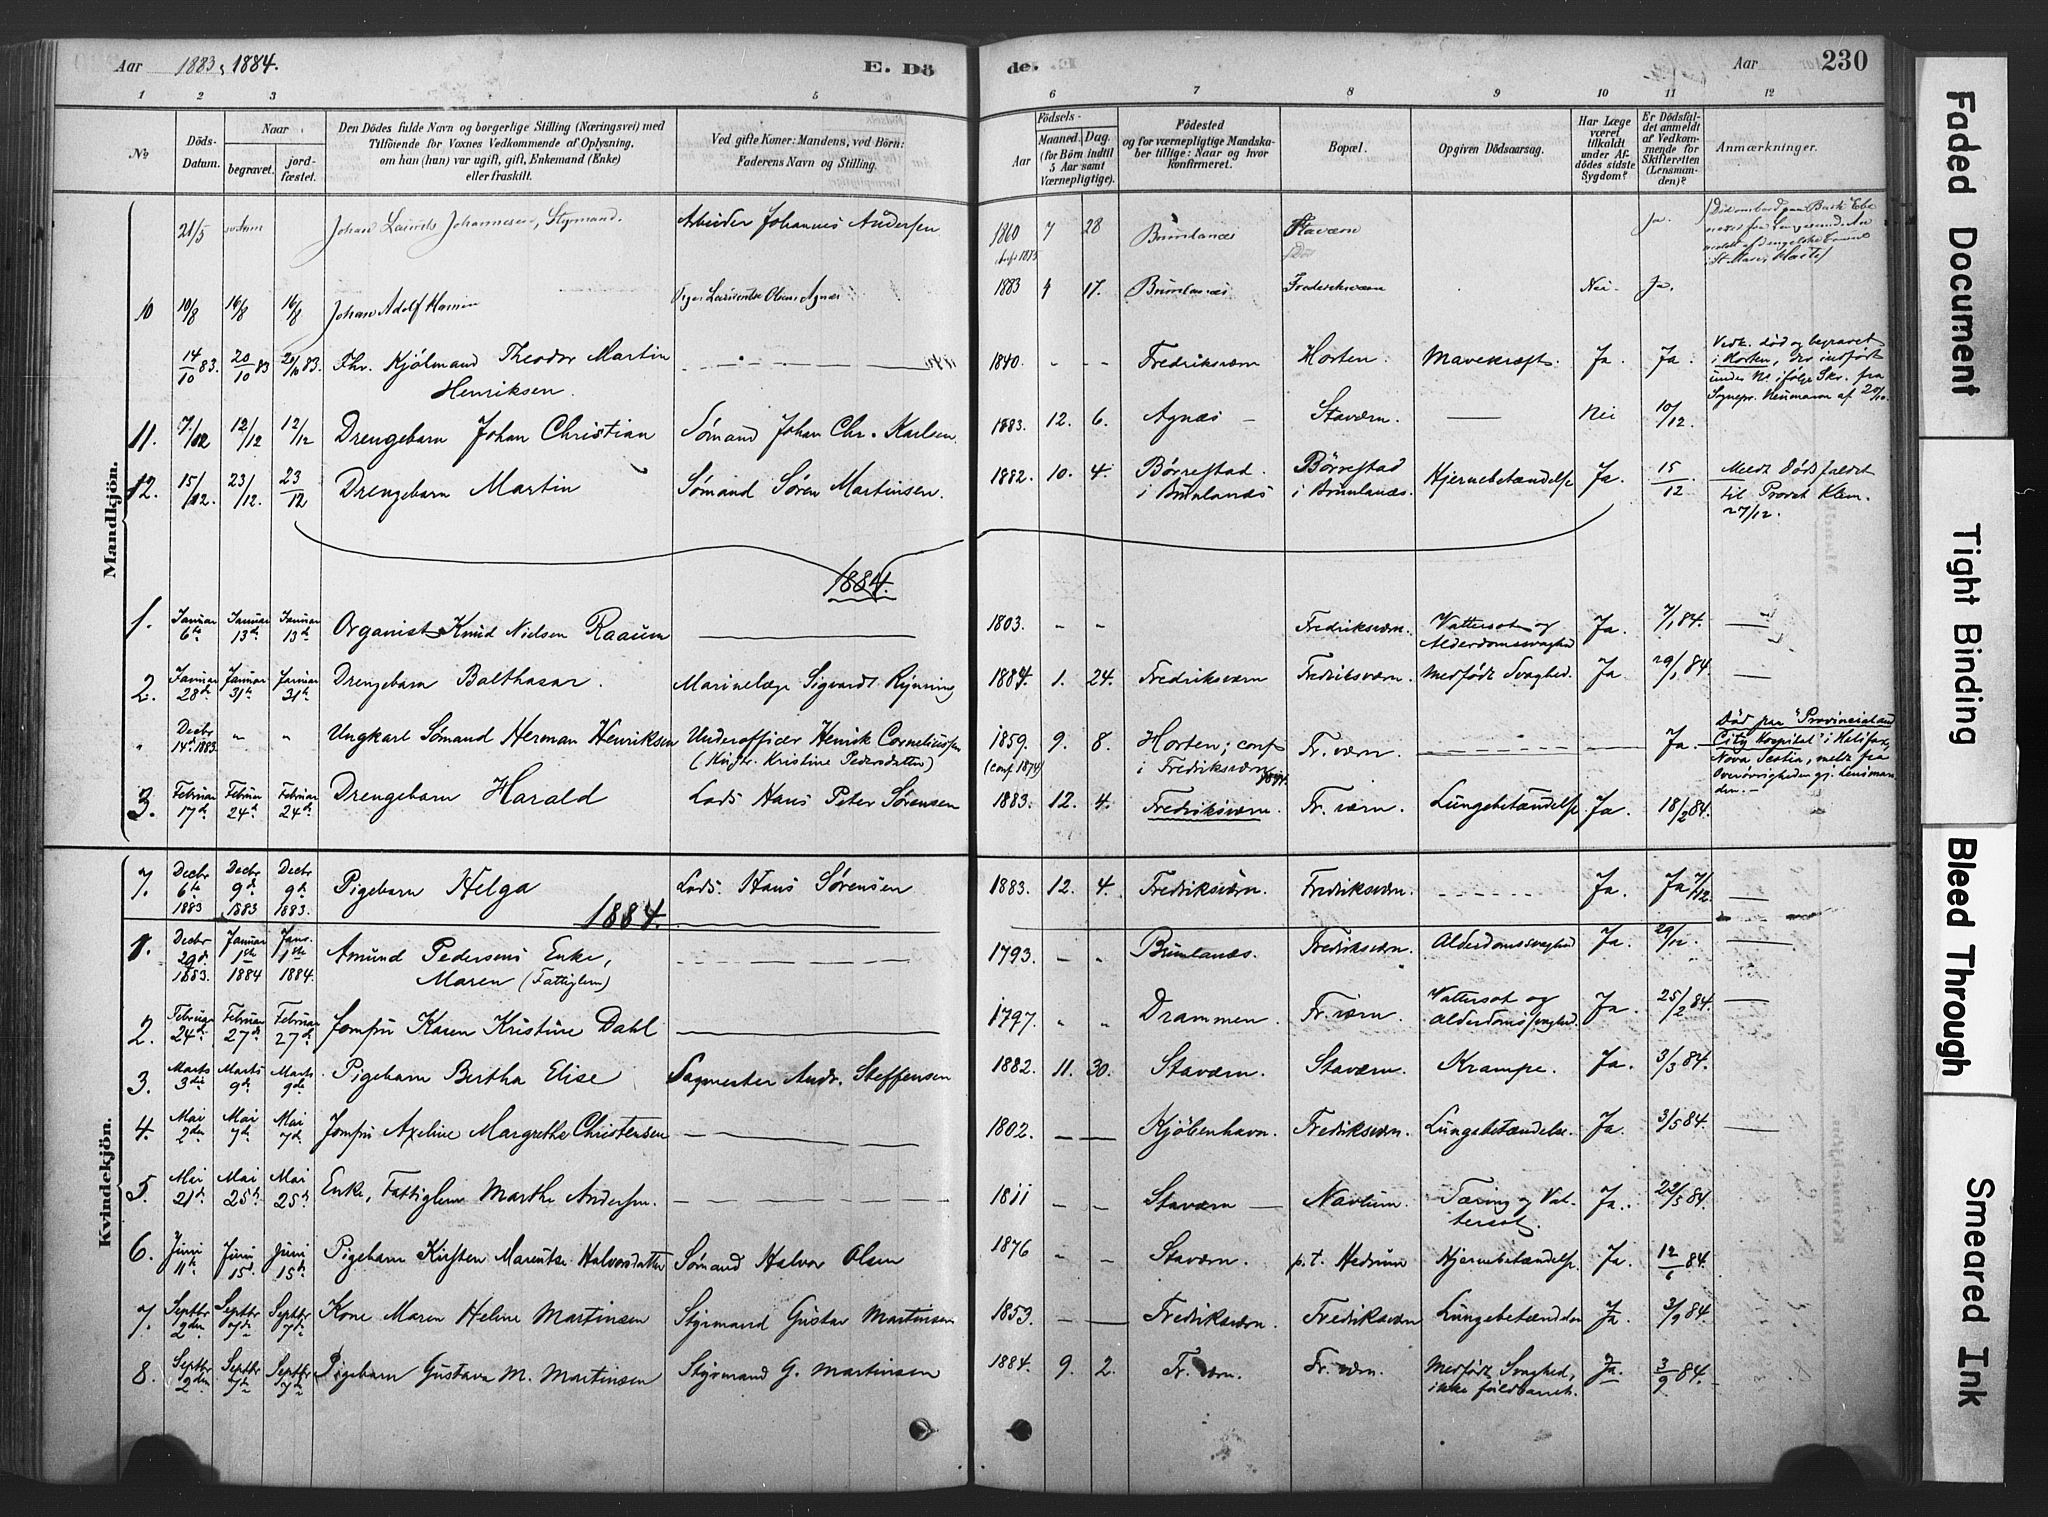 Aar 1883 & 1884. E. Dö de. Aar 230
1 2 3 5 6 7 8 9 10 11 12
No
Döds-Datum.
Naar
begravet.
jord-fæstet.
Den Dödes fulde Navn og borgerlige Stilling (Næringsvei) med
Tilföiende for Voxnes Vedkommende af Oplysning,
om han (hun) var ugift, gift, Enkemand (Enke)
eller fraskilt.
Ved gifte Koner: Mandens, ved Börn:
Faderens Navn og Stilling.
Födsels-
Aar
Maaned. Dag.
(for Börn indtil
5 Aar samt
Værnepligtige).
Födested
og for værnepligtige Mandska-
ber tillige: Naar og hvor
konfirmeret.
Bopæl.
Opgiven Dödsaarsag.
Har Læge
været
tilkaldt
under Af-
dödes sidste
Sygdom?
Er Dödsfal-
det anmeldt
af Vedkom-
mende for
Skifteretten
(Lensman-
den)?
Anmærkninger.
Mandkjön.
21/5 Johan Laurits Johannesen, Styrmand. Arbeider Johannes Andersen 1860 7 28 Brunlanæs Staværn Ja.
10 10/8 16/8 16/8 Johan Adolf Hansen Pige Laurentse Olsen Agnæs 1883 4 17. Brunlanæs Frederiksværn Nei Ja.
14/10 83. 20/10 83 20/10 83. Fhr. Kjølmand Theodor Martin Henriksen. 1840. - - Fredriksværn Horten. Mavekræft. Ja. Ja. Vedk. død og begravet
i Horten, der indført
under No. ifølge Skr. fra
Sognepr. Neumann af 20/10.
11. 7/12 12/12 12/12 Drengebarn Johan Christian Sømand Johan Chr. Karlsen. 1883. 12. 6. Agnæs - Staværn. Nei 10/12.
12. 15/12. 23/12. 23/12 Drengebarn Martin Sømand Søren Martinsen. 1882. 10. 4. Børrestad i Brunlanæs Børrestad i Brunlanæs. Hjernebetændelse Ja. 15/12 Meldt Dødsfaldet
til Provst Klem.
27/12.
1884.
1. Januar 6te Januar 13d. Januar 13d. Organist Knud Nielsen Raaum 1803. - - Fredriksværn. Vattersot og Alderdomssvaghed Ja. 7/1 84.
2. Januar 28de Januar 31te Januar 31te Drengebarn Balthasar. Marinelæge Sigvardt Rynning 1884. 1. 24. Fredriksværn Fredriksværn. Medfødt Svaghed. Ja. 29/1 84.
" Decbr 14d. 1883. " " Ungkarl Sømand Herman Henriksen Underofficer Henrik Corneliussen
1859. (conf 1874) 9. 8. Horten; conf i Fredriksværn 1874. Fr. værn. Ja. Død paa "Provincial and
City Hospital" i Halifax,
Nova Scotia, meldt fra
Overøvrigheden gj. Lensman-
den.
3. Februar 17d. Februar 24d. Februar 24d. Drengebarn Harald Lods Hans Peter Sørensen 1883. 12. 4. Fredriksværn. Fr. værn. Lungebetændelse Ja. 18/2 84.
Kvindekjön.
7. Decbr 6te 1883 Decbr 9d. 1883 Decbr 9d. 1883. Pigebarn Helga Lods. Hans Sørensen 1883. 12. 4. Fredriksværn. Fredriksværn. Ja. Ja 7/12.
1884.
1. Decbr 29d. 1883. Januar 1ste 1884 Jan. 1ste 1884. Amund Pedersens Enke, Maren (Fattiglem) 1793. - - Brunlanæs. Fredriksværn. Alderdomssvaghed Ja. 29/12.
2. Februar 24d. Februar 27d. Februar 27d. Jomfru Karen Kristine Dahl 1797. " " Drammen. Fr. værn. Vattersot og Alderdomssvaghed. Ja. 25/2 84.
3. Marts 3die Marts 9de Marts 9de Pigebarn Bertha Elise Sagmester Andr. Steffensen 1882. 11. 30. Staværn. Staværn. Krampe. Ja. 3/3 84.
4. Mai 2den Mai 7d. Mai 7d. Jomfru Axeline Margrethe Christensen 1802. Kjøbenhavn. Fredriksværn. Lungebetændelse. Ja. 3/5 84.
5. Mai 21d. Mai 25d. Mai 25d. Enke, Fattiglem Marthe Andersen. 1811 - - Staværn - Navlum. Tæring og Vat-
tersot. Ja. 22/5 84.
6. Juni 11te Juni 15d. Juni 15d. Pigebarn Kirsten Marentse Halvorsdatter Sømand Halvor Olsen 1876 - - Staværn. p. t. Hedrum Hjernebetændelse Ja. 12/6 84.
7. Septbr 2den Septbr 7de Septbr 7de Kone Maren Heline Martinsen Styrmand Gustav Martinsen 1853. Fredriksværn. Fredriksværn Lungebetændelse Ja. 3/9 84.
8. Septbr 2den Septbr 7de Septbr 7de Pigebarn Gustava M. Martinsen Styrmand G. Martinsen 1884. 9. 2. Fr. værn. Fr. værn. Medfødt Svaghed,
ikke fuldbaaret. Ja. 3/9 84.
Faded Document
Tight Binding
Bleed Through
Smeared Ink